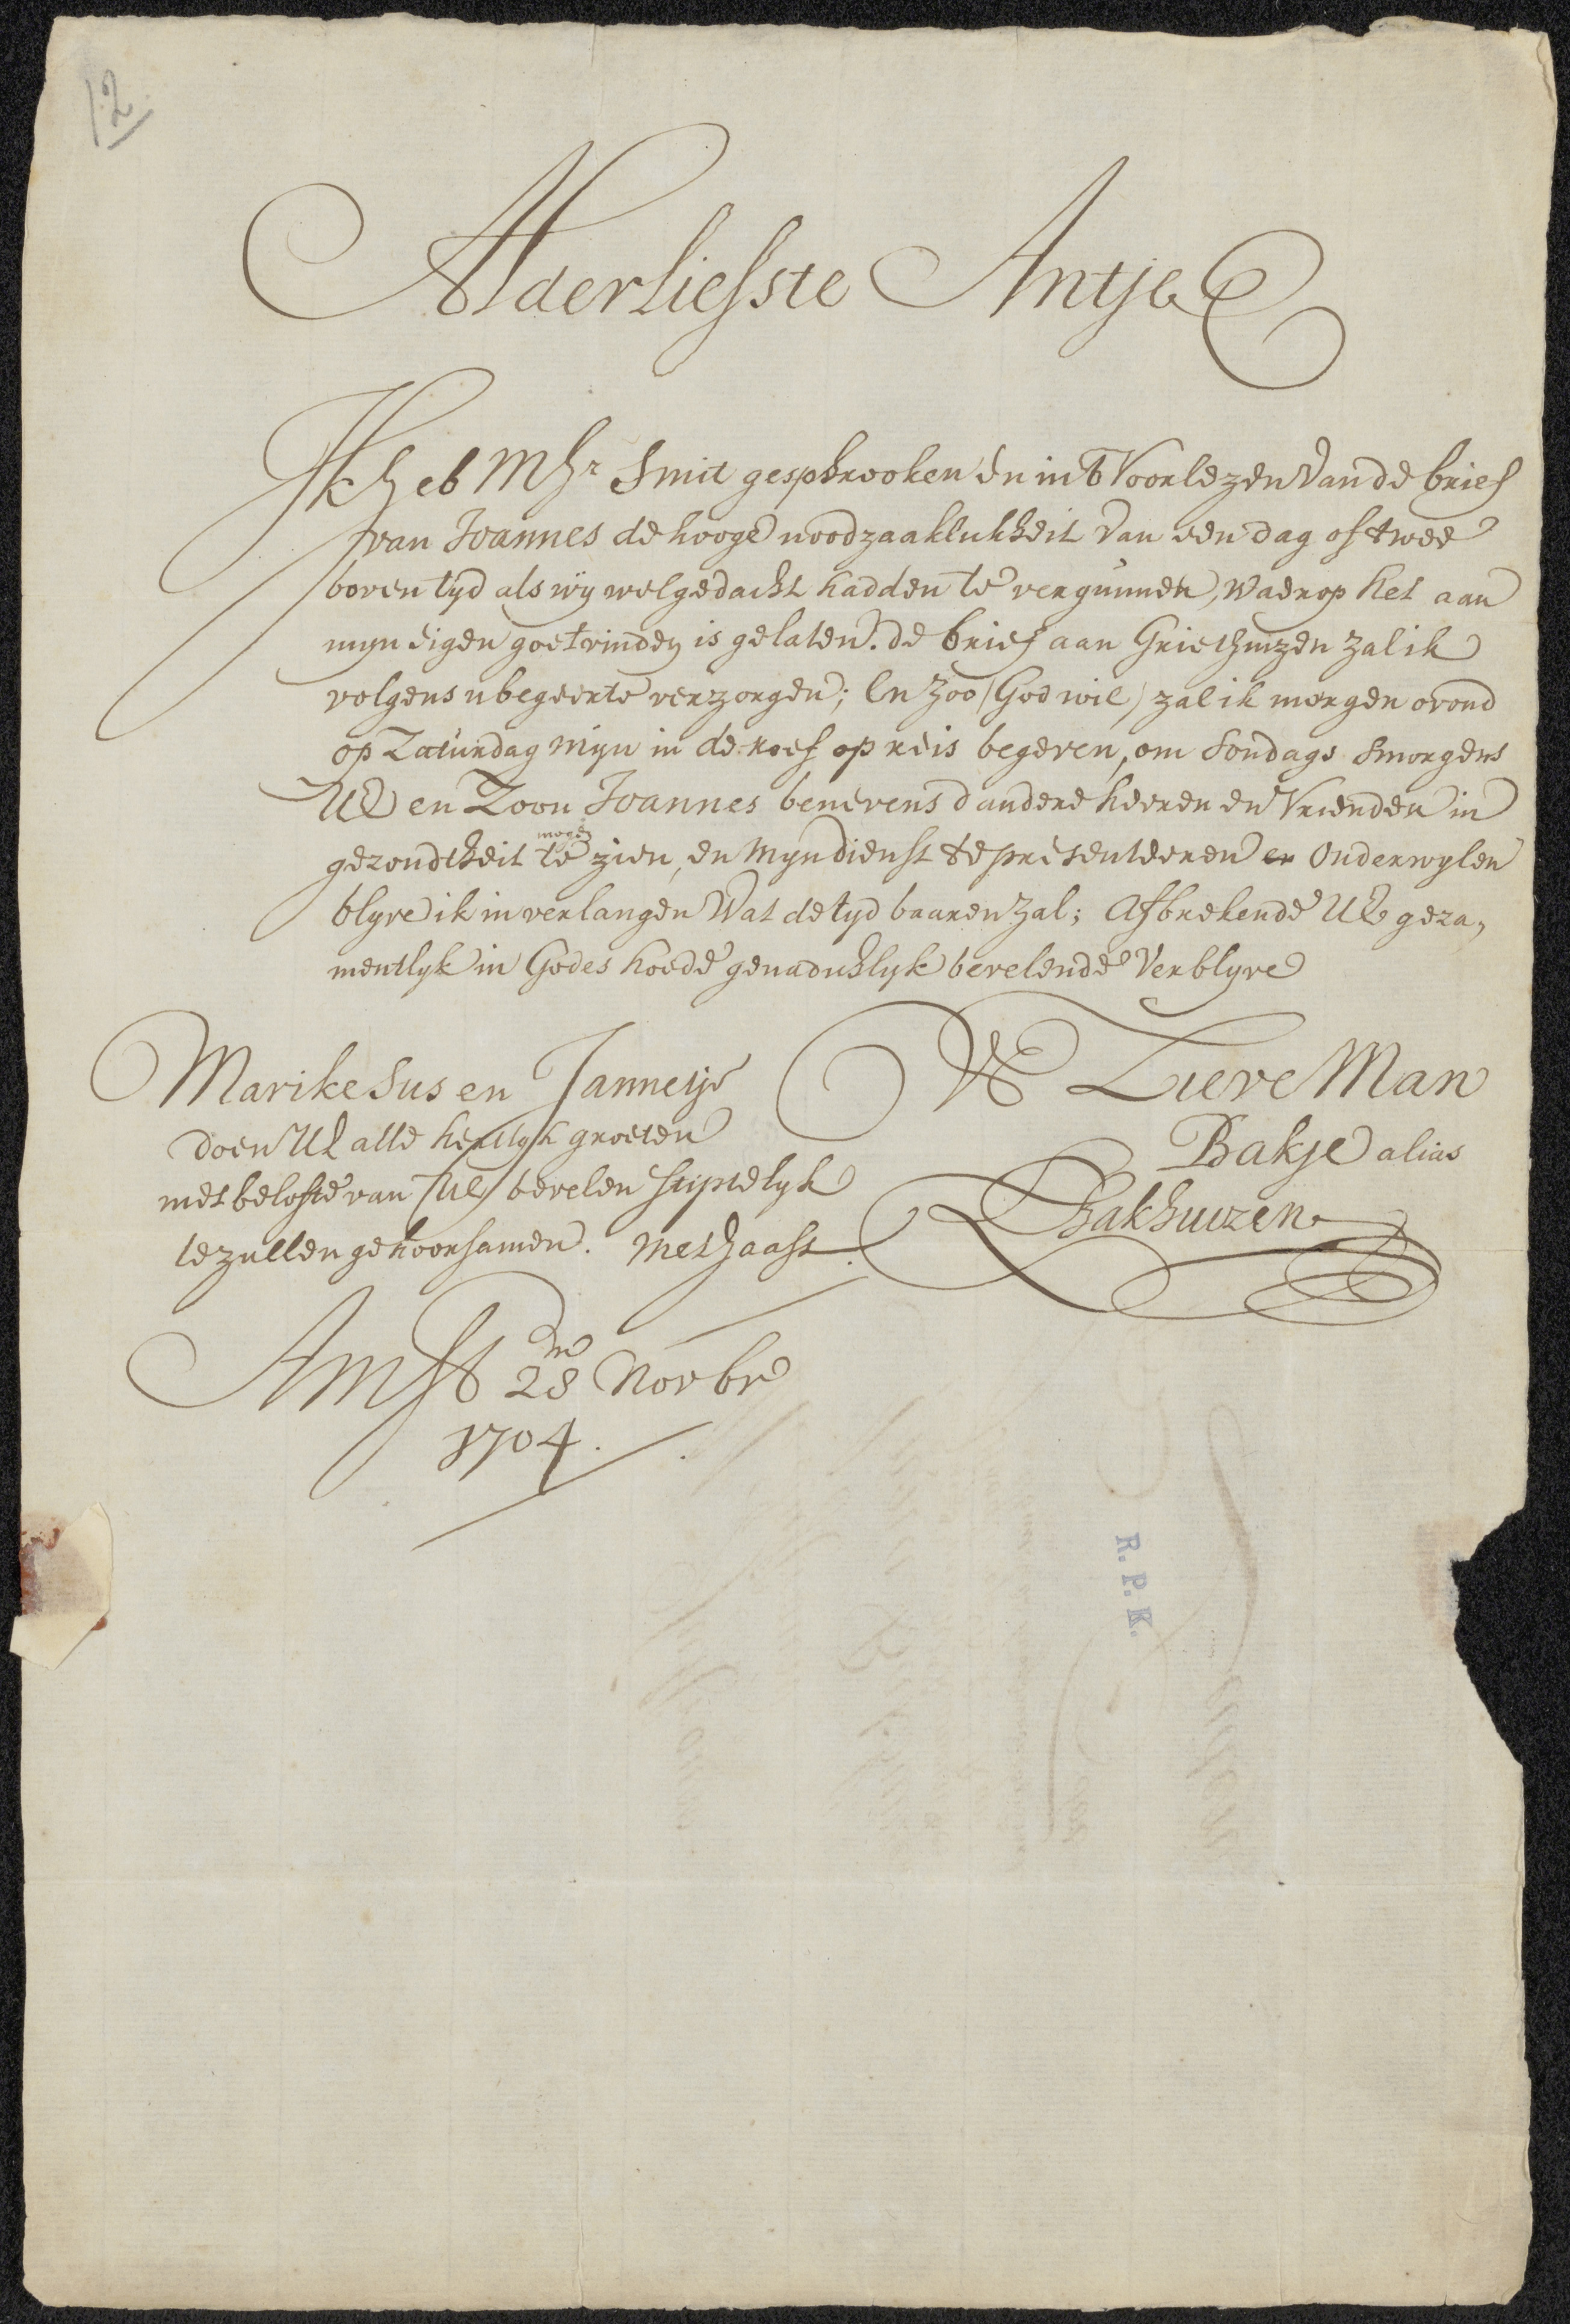 12
Alderliefste Antje
Ik heb Mhr Smit gesphrooken en int Voorlezen Van de brief
van Joannes de hooge noodzaaklukheit Van een dag of twee
boven tyd als wy wel gedacht hadden te vergunnen, Waerop het aan
myn eigen goetvinden is gelaten. de brief aan Griethuizen zal ik
volgens u begeerte verzorgen; En zoo (God wil) zal ik morgen avond
op Zaturdag Myn in de roef op reis begeven, om Sondags Smorgens
UE en Zoon Joannes benevens d andere heeren en Vrienden in
gezondtheit te mogen zien, en Myn dienst te presenteeren en Onderwylen
blyve ik in verlangen Wat de tyd baaren zal; Afbrekende UE geza,
mentlyk in Godes hoede genadichlyk bevelende Verblyve
UE Lieve Man
Bakje alias
LBakhuizen
Marike Sus en Jannetje
doen UE alle hertlyk groeten
met belofte van (UE) bevelen stiptelyk
te zullen gehoorsamen. Met haast.
Amst den 28 Novbr
1704.
R. P. K.